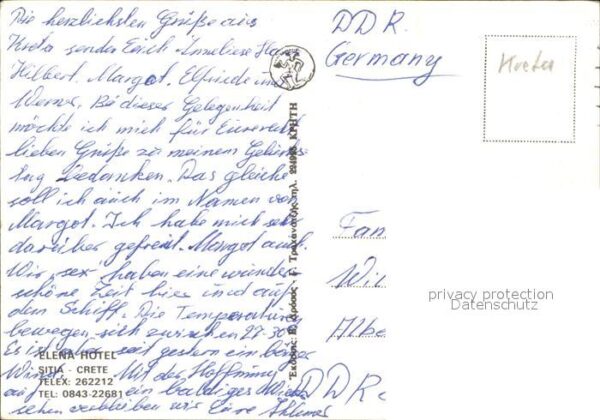 Die herzlichsten Grüße aus
Kreta senden Erich Anneliese
Hilbert. Margot. Elfriede und
Werner. Bei dieser Gelegenheit
möchte ich mich für Eure
lieben Grüße zu meinem Geburts
tag bedanken. Das gleiche
soll ich auch im Namen von
Margot. Ich habe mich sehr
darüber gefreut. Margot auch.
Wir "sex" haben eine wunder
schöne Zeit hier und auf
dem Schiff. Die Temperaturen
bewegen sich zwischen 27-30
Es ist aber seit gestern ein böser
Wind. Mit der Hoffnung
auf ein baldiges Wieder
sehen verbleiben wir Eure
ELENA HOTEL
SITIA - CRETE
TELEX: 262212
TEL: 0843-22681
τηλ. ΚΡΗΤΗ
DDR
Germany
Kreta
Fam
Wil
Albe
DDR
privacy protection
Datenschutz